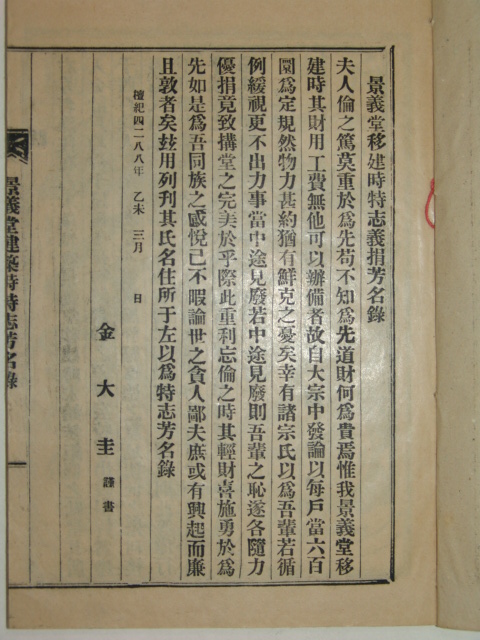 景義堂移建時特志義捐芳名錄
夫人倫之篤莫重於爲先苟不知爲先道財何爲貴焉惟我景義堂移
建時其財用工費無他可以辦備者故自大宗中發論以每戶當六百
圜爲定規然物力甚約猶有鮮克之憂矣幸有諸宗氏以爲吾輩若循
例緩視更不出力事當中途見廢若中途見廢則吾輩之恥遂各隨力
優捐竟致搆堂之完美於乎際此重利忘倫之時其輕財喜施勇於爲
先如是爲吾同族之感悅己不暇論世之貪人鄙夫庶或有興起而廉
且敦者矣玆用列刋其氏名住所于左以爲特志芳名錄
檀紀四二八八年 乙未 三月 日
金大圭 謹書
景義堂建築時特志芳名錄